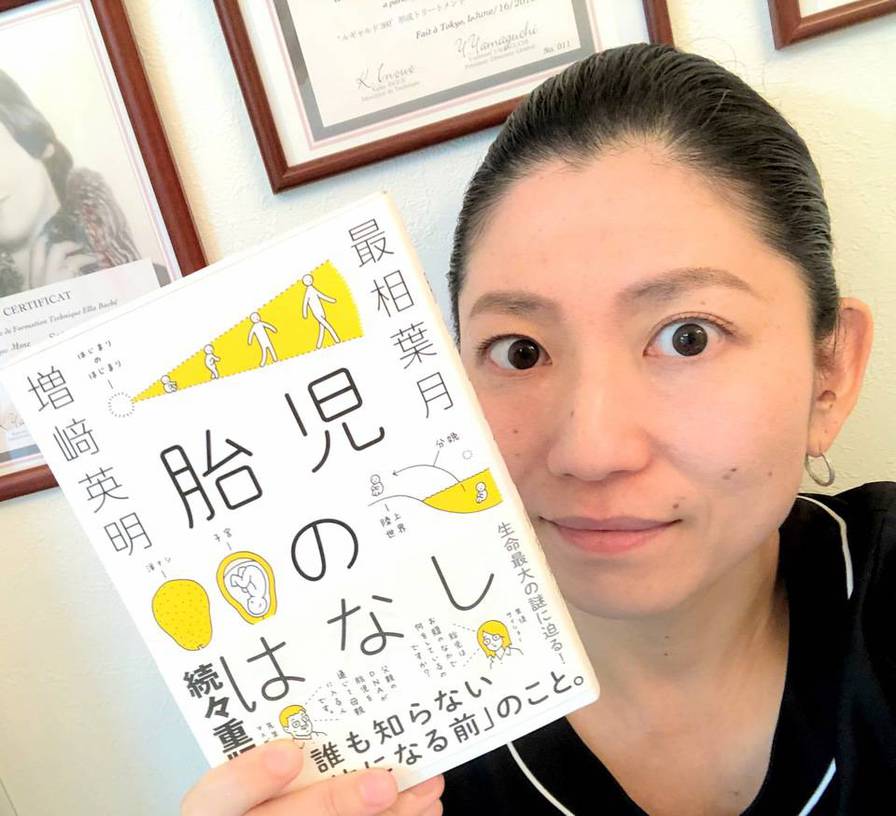 "ルギャルド360° 形成トリートメント
Fait à Tokyo, le June/16/20
K. Inoue
Y. Yamaguchi
No. 011
CERTIFICAT
de Formation Technique Ella Baché
最相葉月
増﨑英明
はじまり
の
はじまり
胎児
の
はなし
分娩
陸上
世界
洋ナシ
子宮
生命最大の謎に迫る!
胎児は
お腹のなかで
何をしているの
ですか?
父親の
DNAが
胎児を
通じて母親
に入るん
です。
続々重版
誰も知らない
になる前」のこと。